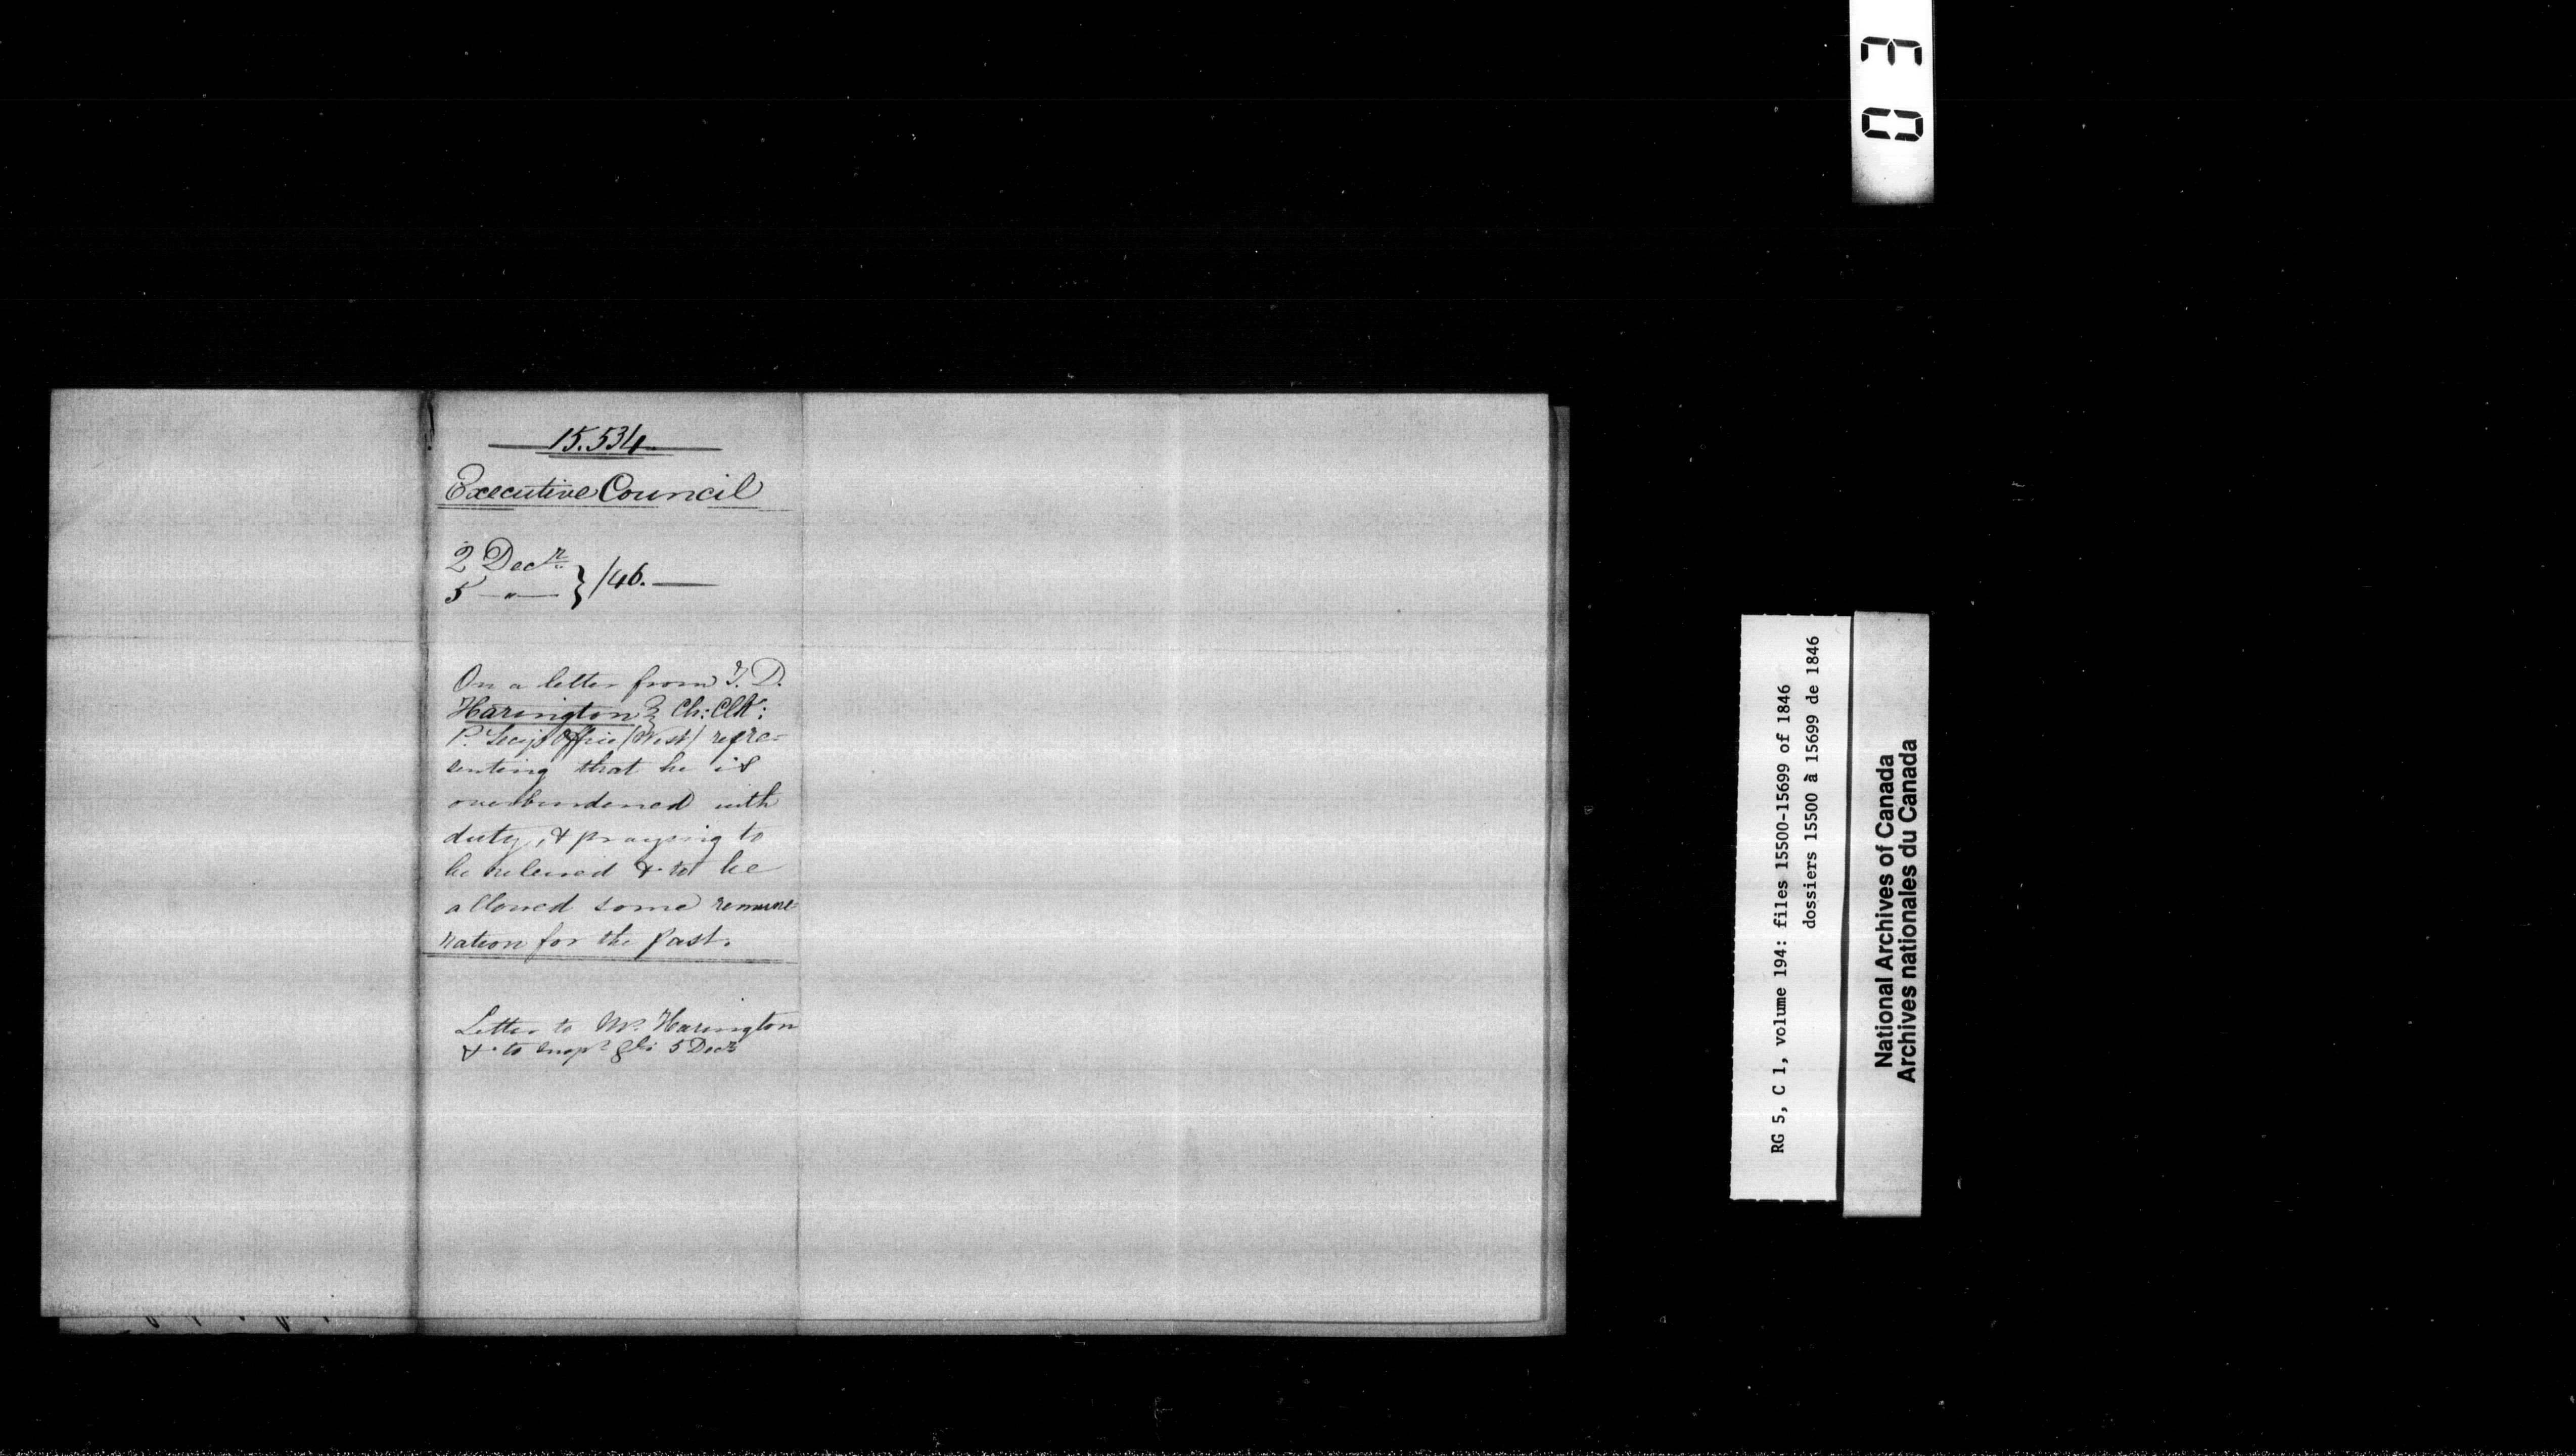 15.534
Executive Council
2 Decr
5 — " — } /46. —
On a letter from T. D.
Harington Esq Ch: Clk:
P. Secy's Office (West) repre=
senting that he is
overburdened with
duty, & praying to
be relieved & to be
allowed some remune=
ration for the past.
Letter to Mr. Harington
& to Inspr Gl: 5 Decr
03
RG 5, C 1, volume 194: files 15500-15699 of 1846
dossiers 15500 à 15699 de 1846
National Archives of Canada
Archives nationales du Canada